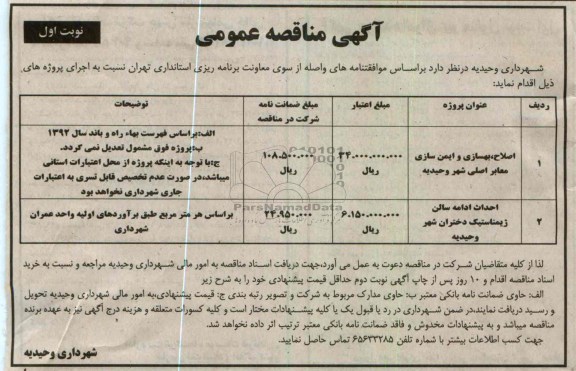 آگهی مناقصه عمومی
نوبت اول
شهرداری وحیدیه درنظر دارد براساس موافقتنامه های واصله از سوی معاونت برنامه ریزی استانداری تهران نسبت به اجرای پروژه های
ذیل اقدام نماید:
ردیف عنوان پروژه مبلغ اعتبار مبلغ ضمانت نامه شرکت در مناقصه توضیحات
۱ اصلاح،بهسازی و ایمن سازی معابر اصلی شهر وحیدیه ۳۴.۰۰۰.۰۰۰.۰۰۰ ریال ۱۰۸.۵۰۰.۰۰۰ ریال
الف:براساس فهرست بهاء راه و باند سال ۱۳۹۲
ب:پروژه فوق مشمول تعدیل نمی گردد.
ج:با توجه به اینکه پروژه از محل اعتبارات استانی
میباشد،در صورت عدم تخصیص قابل تسری به اعتبارات
جاری شهرداری نخواهد بود
۲ احداث ادامه سالن ژیمناستیک دختران شهر وحیدیه ۶.۱۵۰.۰۰۰.۰۰۰ ریال ۲۴.۹۵۰.۰۰۰ ریال
براساس هر متر مربع طبق برآوردهای اولیه واحد عمران
شهرداری
لذا از کلیه متقاضیان شرکت در مناقصه دعوت به عمل می آورد،جهت دریافت اسناد مناقصه به امور مالی شهرداری وحیدیه مراجعه و نسبت به خرید
اسناد مناقصه اقدام و ۱۰ روز پس از چاپ آگهی نوبت دوم حداقل قیمت پیشنهادی خود را به شرح زیر
الف: حاوی ضمانت نامه بانکی معتبر ب: حاوی مدارک مربوط به شرکت و تصویر رتبه بندی ج: قیمت پیشنهادی،به امور مالی شهرداری وحیدیه تحویل
و رسید دریافت نمایند.در ضمن شهرداری در رد یا قبول یک یا کلیه پیشنهادات مختار است و کلیه کسورات متعلقه و هزینه درج آگهی نیز به عهده برنده
مناقصه میباشد و به پیشنهادات مخدوش و فاقد ضمانت نامه بانکی معتبر ترتیب اثر داده نخواهد شد.
جهت کسب اطلاعات بیشتر با شماره تلفن ۶۵۶۳۳۲۸۵ تماس حاصل نمایید.
شهرداری وحیدیه
ParsNamadData